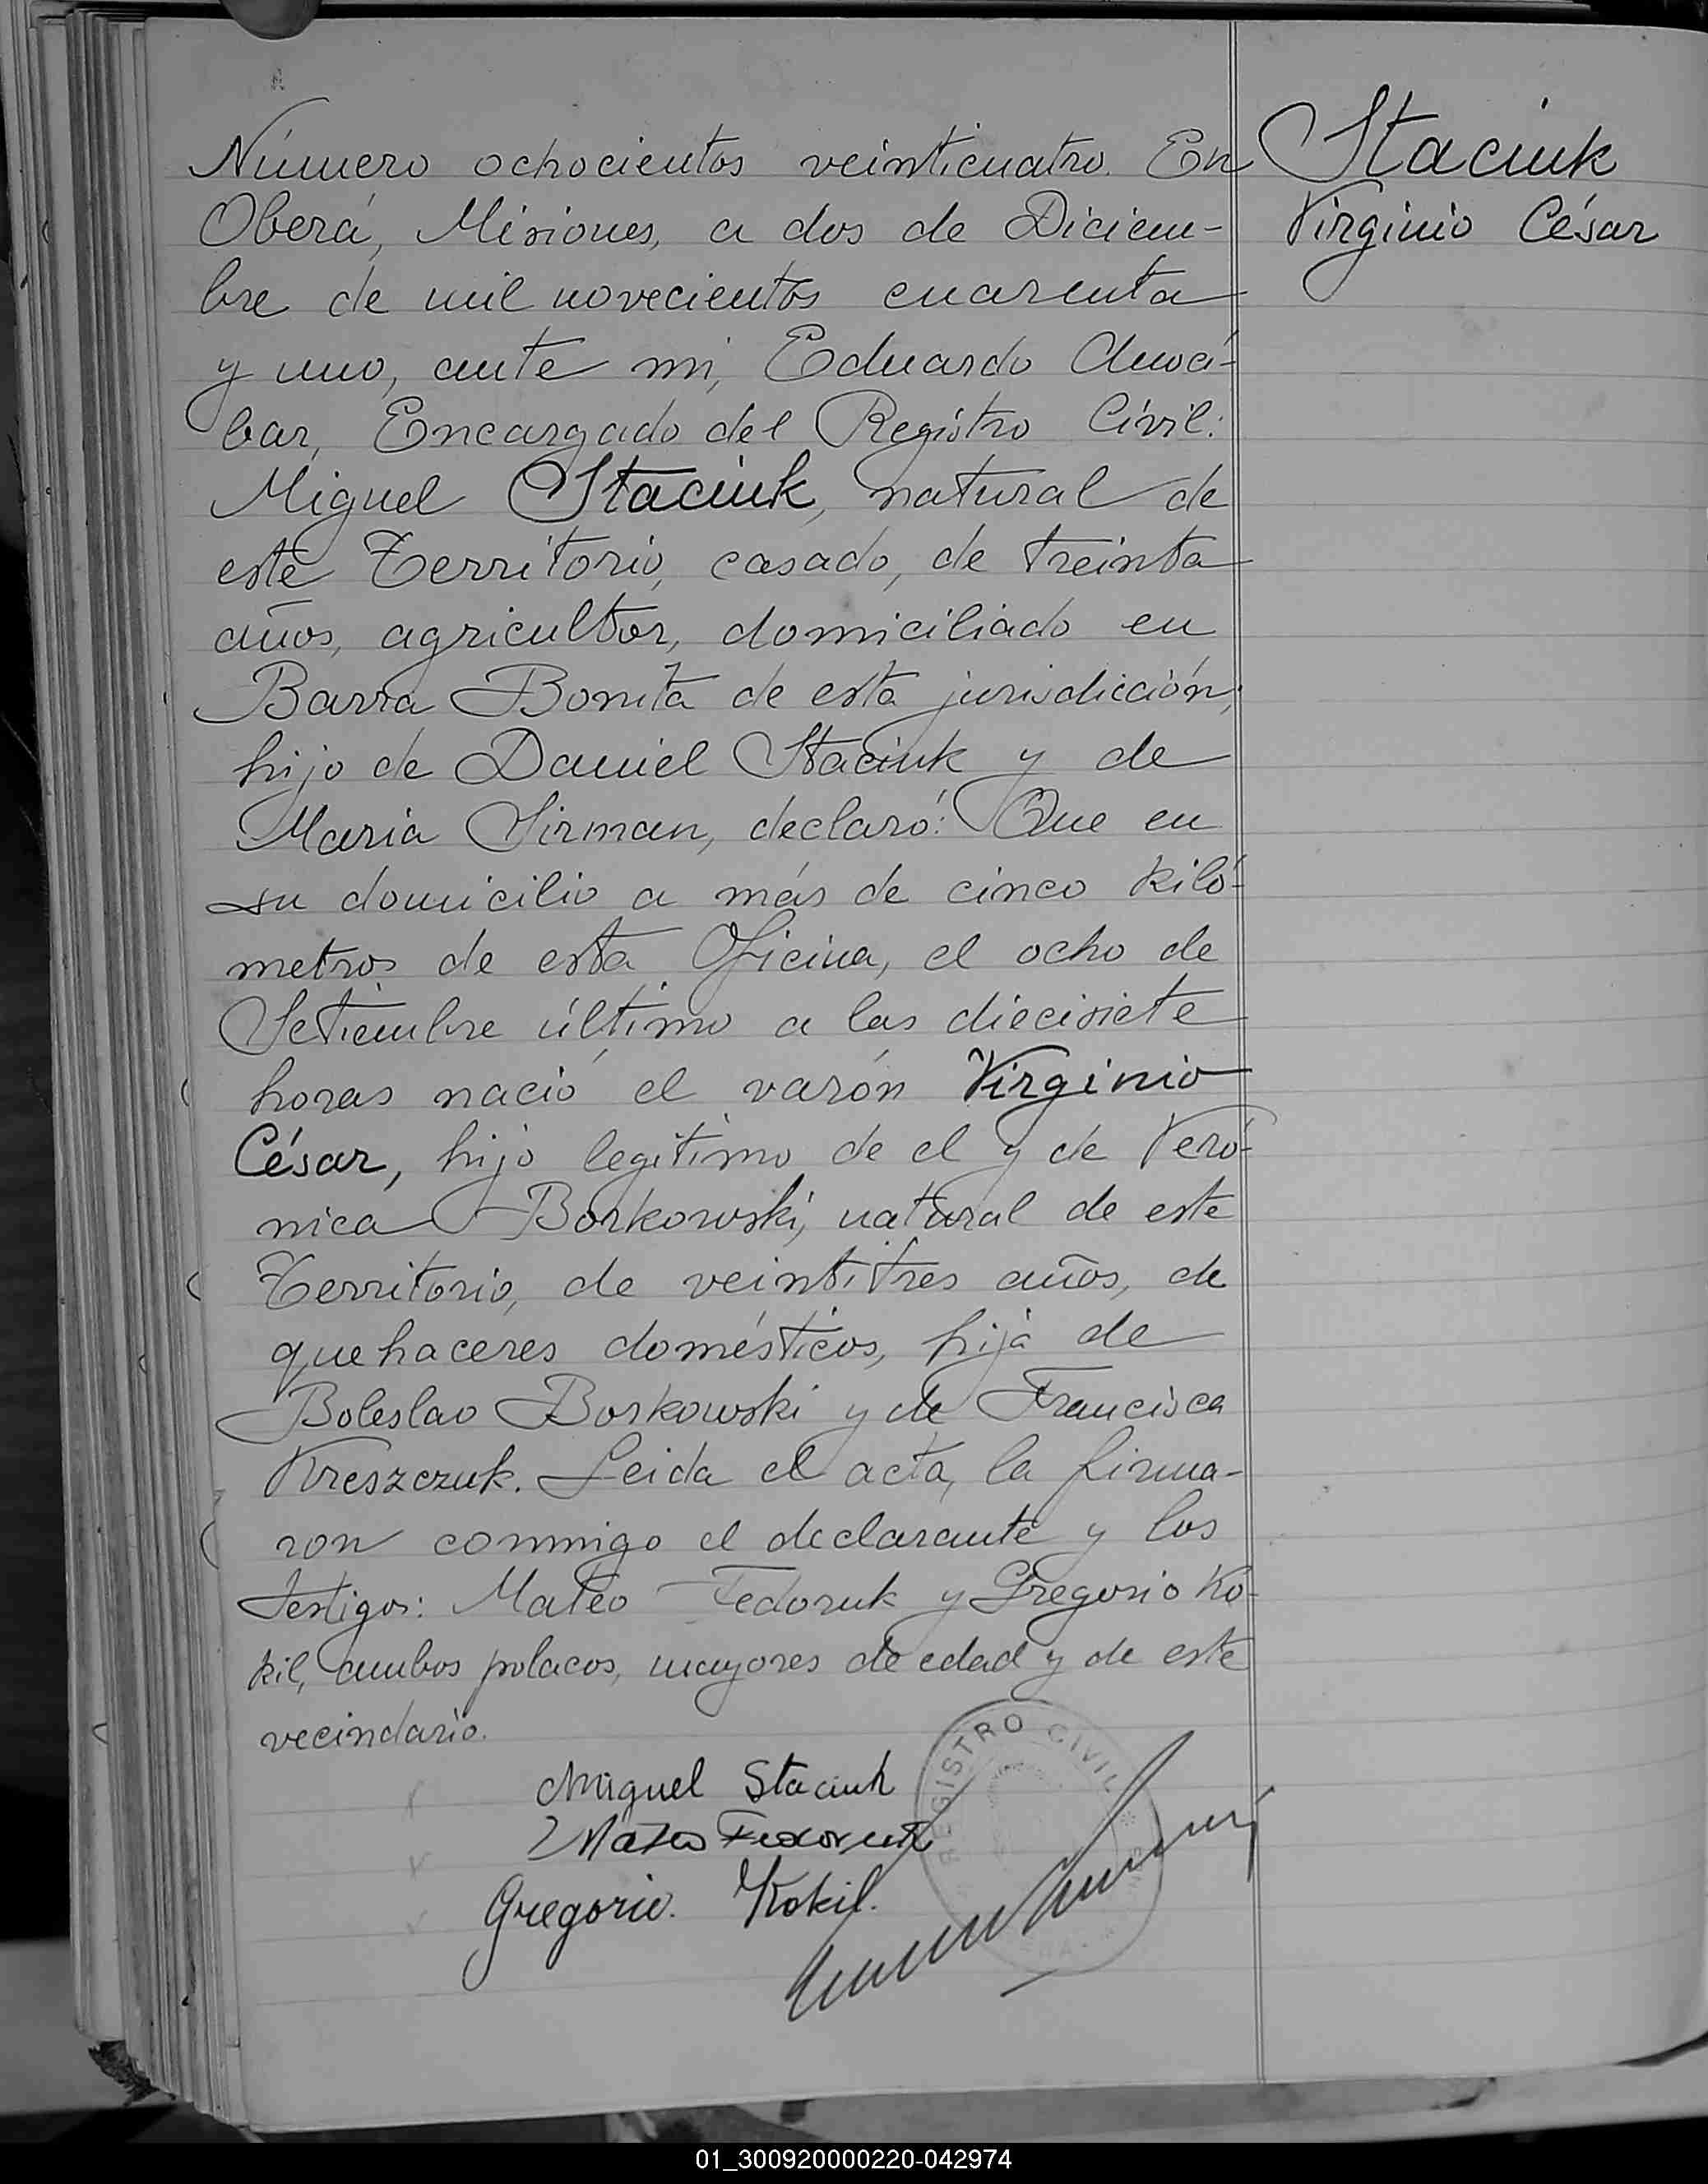 Número ochocientos veinticuatro. En
Oberá, Misiones, a dos de Diciem-
bre de mil novecientos cuarenta
y uno, ante mi, Eduardo
bar, Encargado del Registro Civil:
Miguel Staciuk, natural de
este Territorio, casado, de treinta
años, agricultor, domiciliado en
Barra Bonita de esta jurisdicción;
hijo de Daniel Staciuk y de
Maria Sirman, declaró: Que en
su domicilio a más de cinco kiló-
metros de esta Oficina, el ocho de
Setiembre último a las diecisiete
horas nació el varón Virginio
César, hijo legítimo de el y de Veró-
nica Borkowski, natural de este
Territorio, de veintitres años, de
quehaceres domésticos, hija de
Boleslao Borkowski y de Francisca
Kreszczuk. Leida el acta, la firma-
ron conmigo el declarante y los
testigos: Mateo Fedoruk y Gregorio Ko-
kil, ambos polacos, mayores de edad y de este
vecindario.
Miguel Staciuk
Mateo Fedoruk
Gregorio. Kokil.
REGISTRO CIVIL
Staciuk
Virginio César
01_300920000220-042974